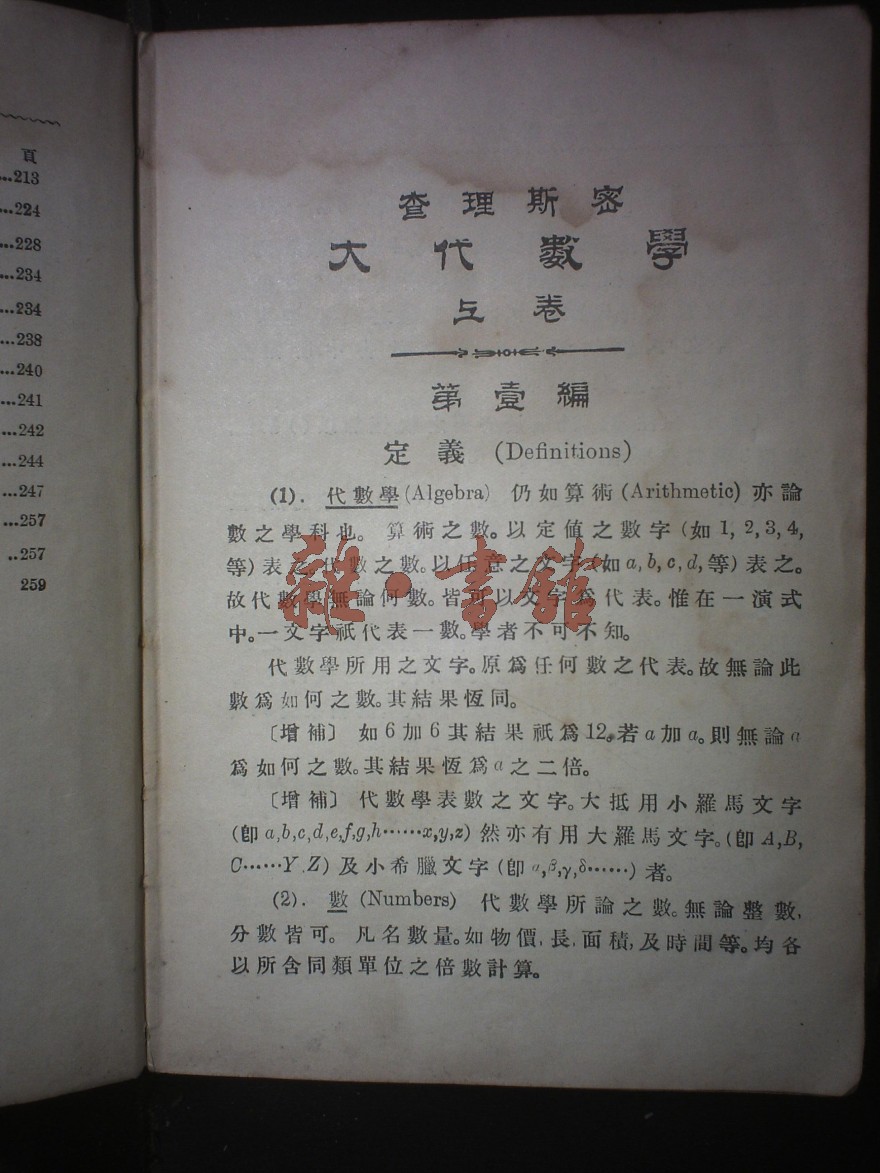 頁
...213
...224
...228
...234
...234
...238
...240
...241
...242
...244
...247
...257
..257
259
查理斯密
大代數學
上卷
第壹編
定義 (Definitions)
(1). 代數學 (Algebra) 仍如算術 (Arithmetic) 亦論
數之學科也。 算術之數。以定値之數字 (如 1, 2, 3, 4,
等) 表之。代數之數。以任意之文字 (如 a, b, c, d, 等) 表之。
故代數學無論何數。皆可以文字爲代表。惟在一演式
中。一文字祇代表一數。學者不可不知。
代數學所用之文字。原爲任何數之代表。故無論此
數爲如何之數。其結果恆同。
〔增補〕 如 6 加 6 其結果祇爲 12。若 a 加 a。則無論 a
爲如何之數。其結果恆爲 a 之二倍。
〔增補〕 代數學表數之文字。大抵用小羅馬文字
(卽 a,b,c,d,e,f,g,h……x,y,z) 然亦有用大羅馬文字。(卽 A,B,
C……Y,Z) 及小希臘文字 (卽 α,β,γ,δ……) 者。
(2). 數 (Numbers) 代數學所論之數。無論整數,
分數皆可。 凡名數量。如物價,長,面積,及時間等。均各
以所含同類單位之倍數計算。
雜·書館